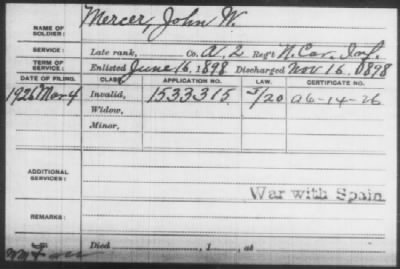 NAME OF SOLDIER: Mercer, John W.
SERVICE: Late rank, Co. A, 2 Reg't N. Car. Inf.
TERM OF SERVICE: Enlisted June 16, 1898 Discharged Nov 16, 1898
DATE OF FILING. CLASS. APPLICATION NO. LAW. CERTIFICATE NO.
1926 Mar 4 Invalid, 1533315 5/20 A 6-14-26
Widow,
Minor,
ADDITIONAL SERVICES:
War with Spain
REMARKS:
Died , 1 , at